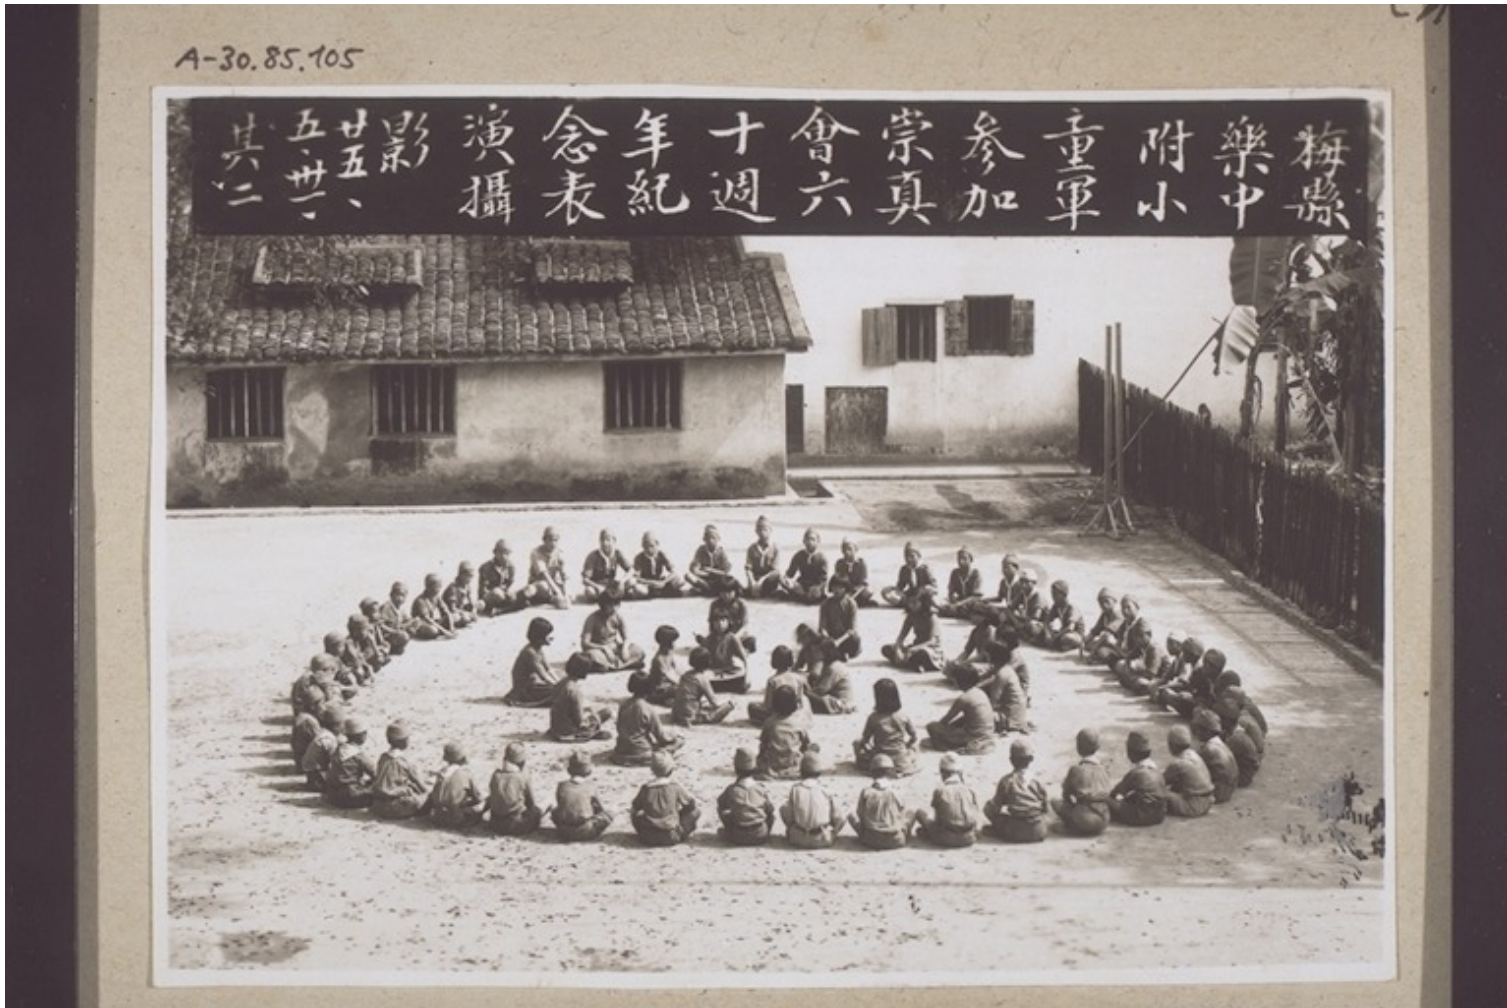 A-30.85.105
梅縣樂中附小童軍參加崇真會六十週年紀念表演攝影
廿五、五、卅一、
其二